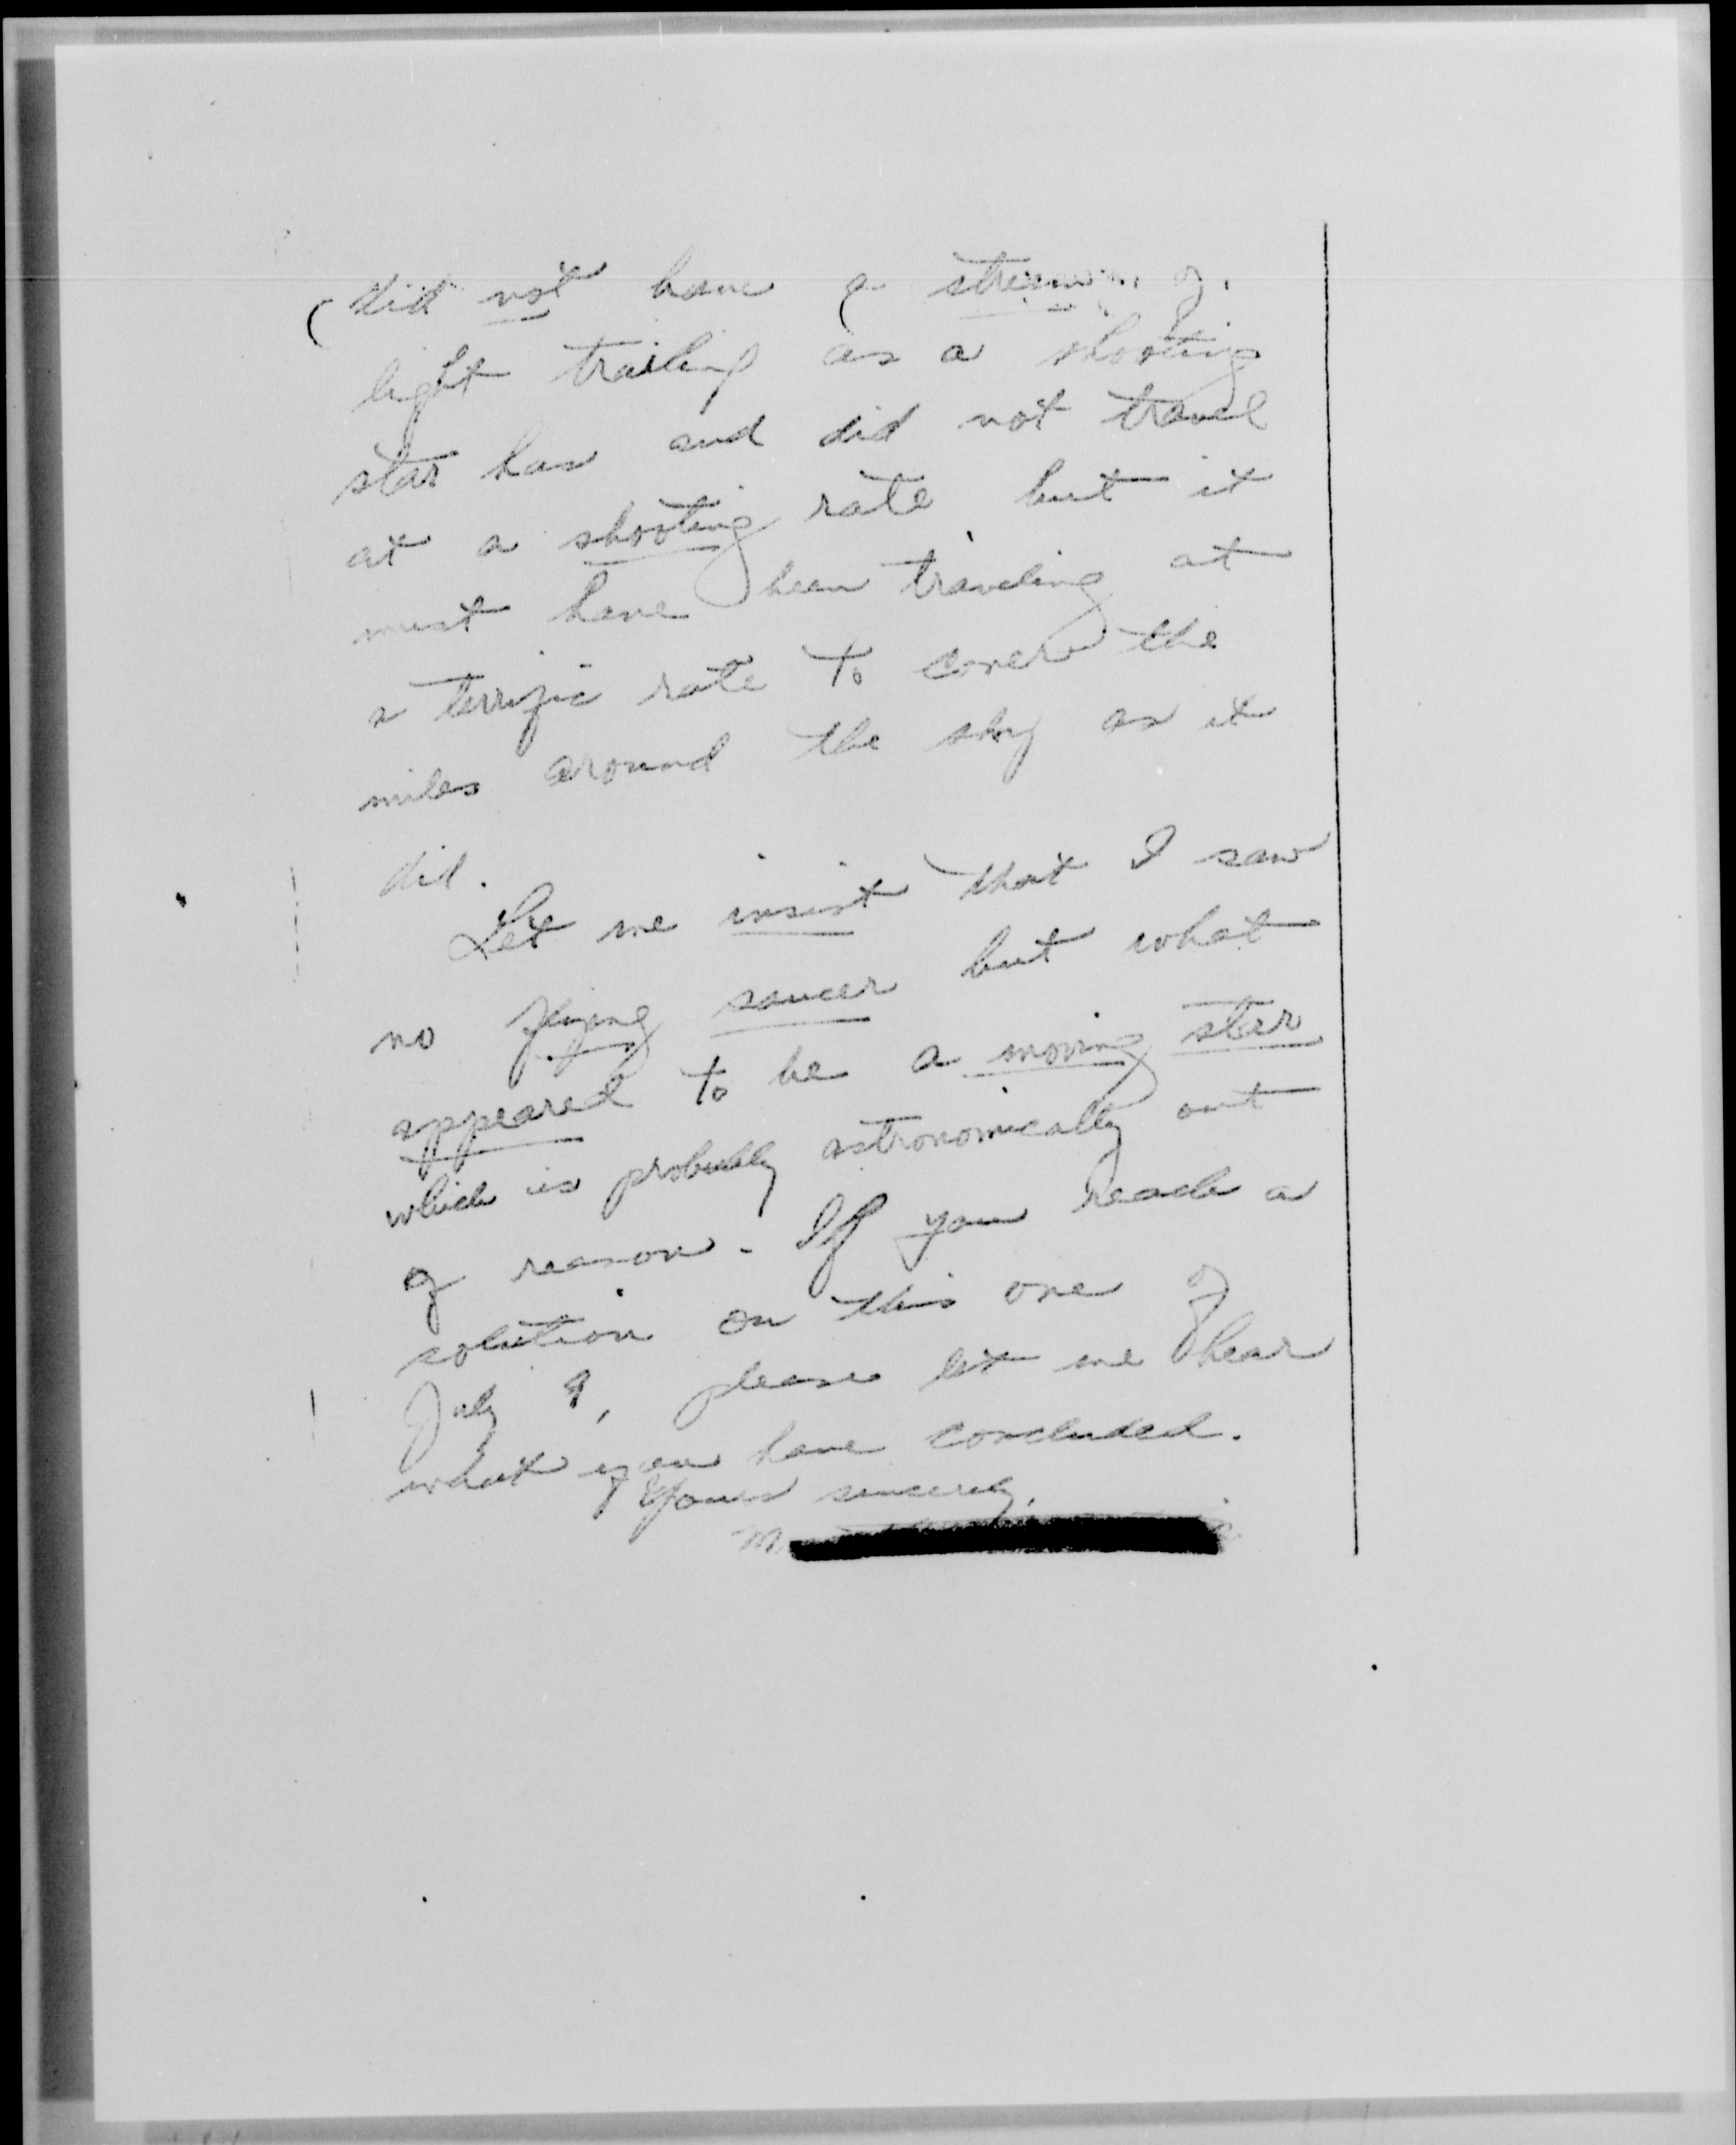 did not have a stream of
light trailing as a shooting
star has and did not travel
at a shooting rate, but it
must have been traveling at
a terrific rate to cover the
miles around the sky as it
did.
Let me insist that I saw
no flying saucer but what
appeared to be a moving star
which is probably astronomically out
of reason. If you reach a
solution on this one of
July 9, please let me hear
what you have concluded.
Yours sincerely,